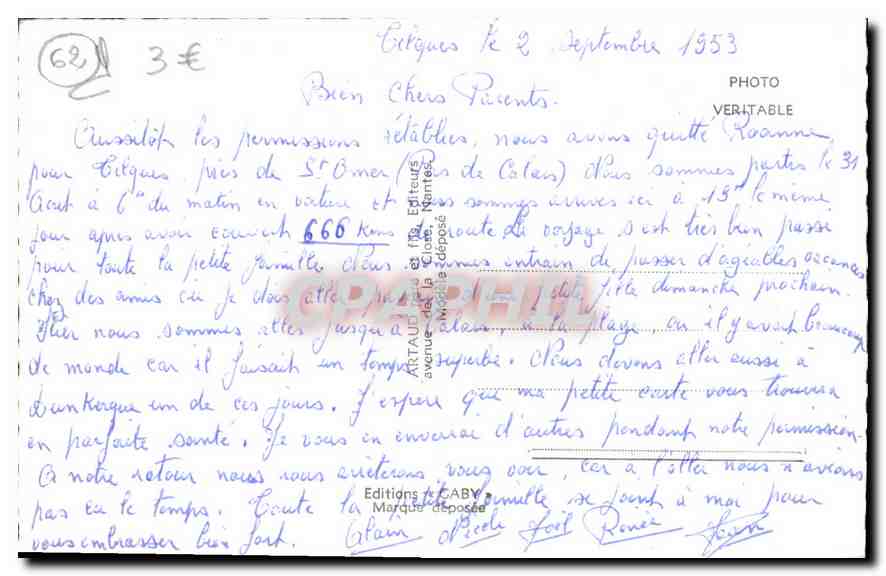 62
3 €
Tilques le 2 septembre 1953
PHOTO
VERITABLE
Bien Chers Parents.
Aussitôt les permissions rétablies, nous avons quitté Roanne
pour Tilques près de St Omer (Pas de Calais) Nous sommes partis le 31
Aout à 6h du matin en voiture et nous sommes arrivés ici à 19h le même
jour après avoir couvert 666 Kms de route. Le voyage s'est très bien passé
pour toute la petite famille. Nous sommes entrain de passer d'agréables vacances
chez des amis où je dois aller petite fête dimanche prochain.
Hier nous sommes allés jusqu'à Calais, à la plage, où il y avait beaucoup
de monde car il faisait un temps superbe. Nous devons aller aussi à
Dunkerque un de ces jours. J'espère que ma petite carte vous trouvera
en parfaite santé. Je vous en enverrai d'autres pendant notre permission.
A notre retour nous nous arrêterons vous voir, car à l'aller nous n'avions
pas eu le temps. Toute la petite famille se joint à moi pour
vous embrasser bien fort. Alain Nicole Joël Renée Jean
ARTAUD père et fils, Editeurs
avenue de la Close, Nantes
Modèle déposé
Editions "GABY"
Marque déposée
CPAPHIL